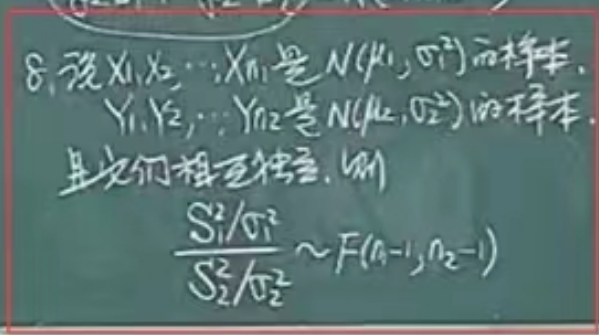 8. 设X₁,X₂,…,Xn₁是N(μ₁,σ₁²)的样本,
Y₁,Y₂,…,Yn₂是N(μ₂,σ₂²)的样本,
且它们相互独立,则
S₁²/σ₁²
S₂²/σ₂² ~ F(n₁-1,n₂-1)